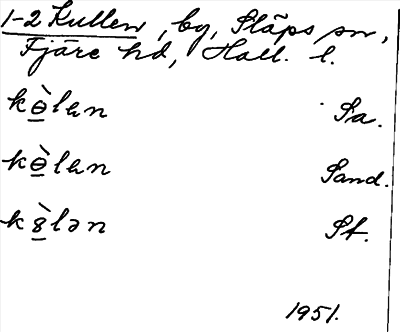 1-2 Kullen, by, Släps sn,
Fjäre hd, Hall. l.
kɵ̀lən Sa.
kɵ̀lən Sand.
k8̀lən St.
1951.